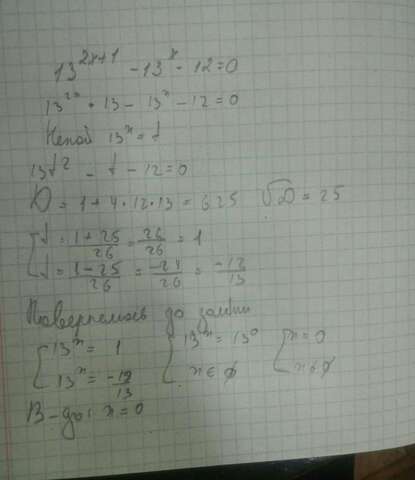 13^{2x+1} - 13^x - 12 = 0
13^{2x} · 13 - 13^x - 12 = 0
Нехай 13^x = t
13t² - t - 12 = 0
D = 1 + 4 · 12 · 13 = 625 √D = 25
[ t = (1+25)/26 = 26/26 = 1
[ t = (1-25)/26 = -24/26 = -12/13
Повернемось до заміни
[ 13^x = 1 [ 13^x = 13^0 [ x = 0
[ 13^x = -12/13 [ x ∈ ∅ [ x ∈ ∅
В-дь: x = 0